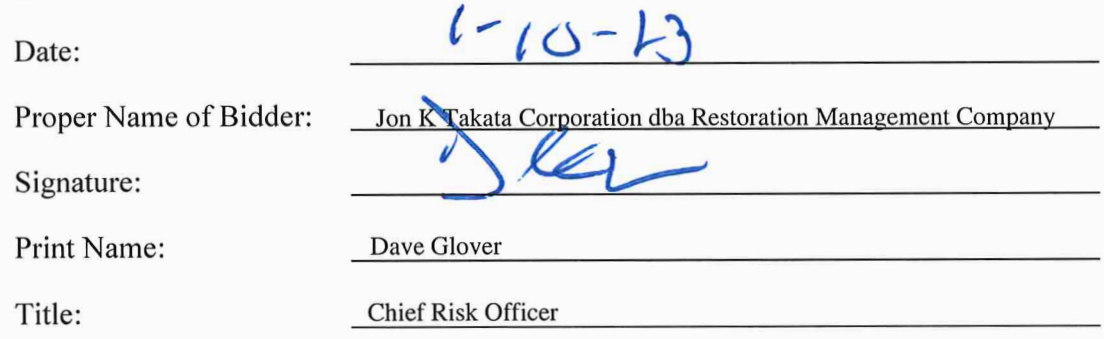 Date: 1-10-23
Proper Name of Bidder: Jon K Takata Corporation dba Restoration Management Company
Signature:
Print Name: Dave Glover
Title: Chief Risk Officer